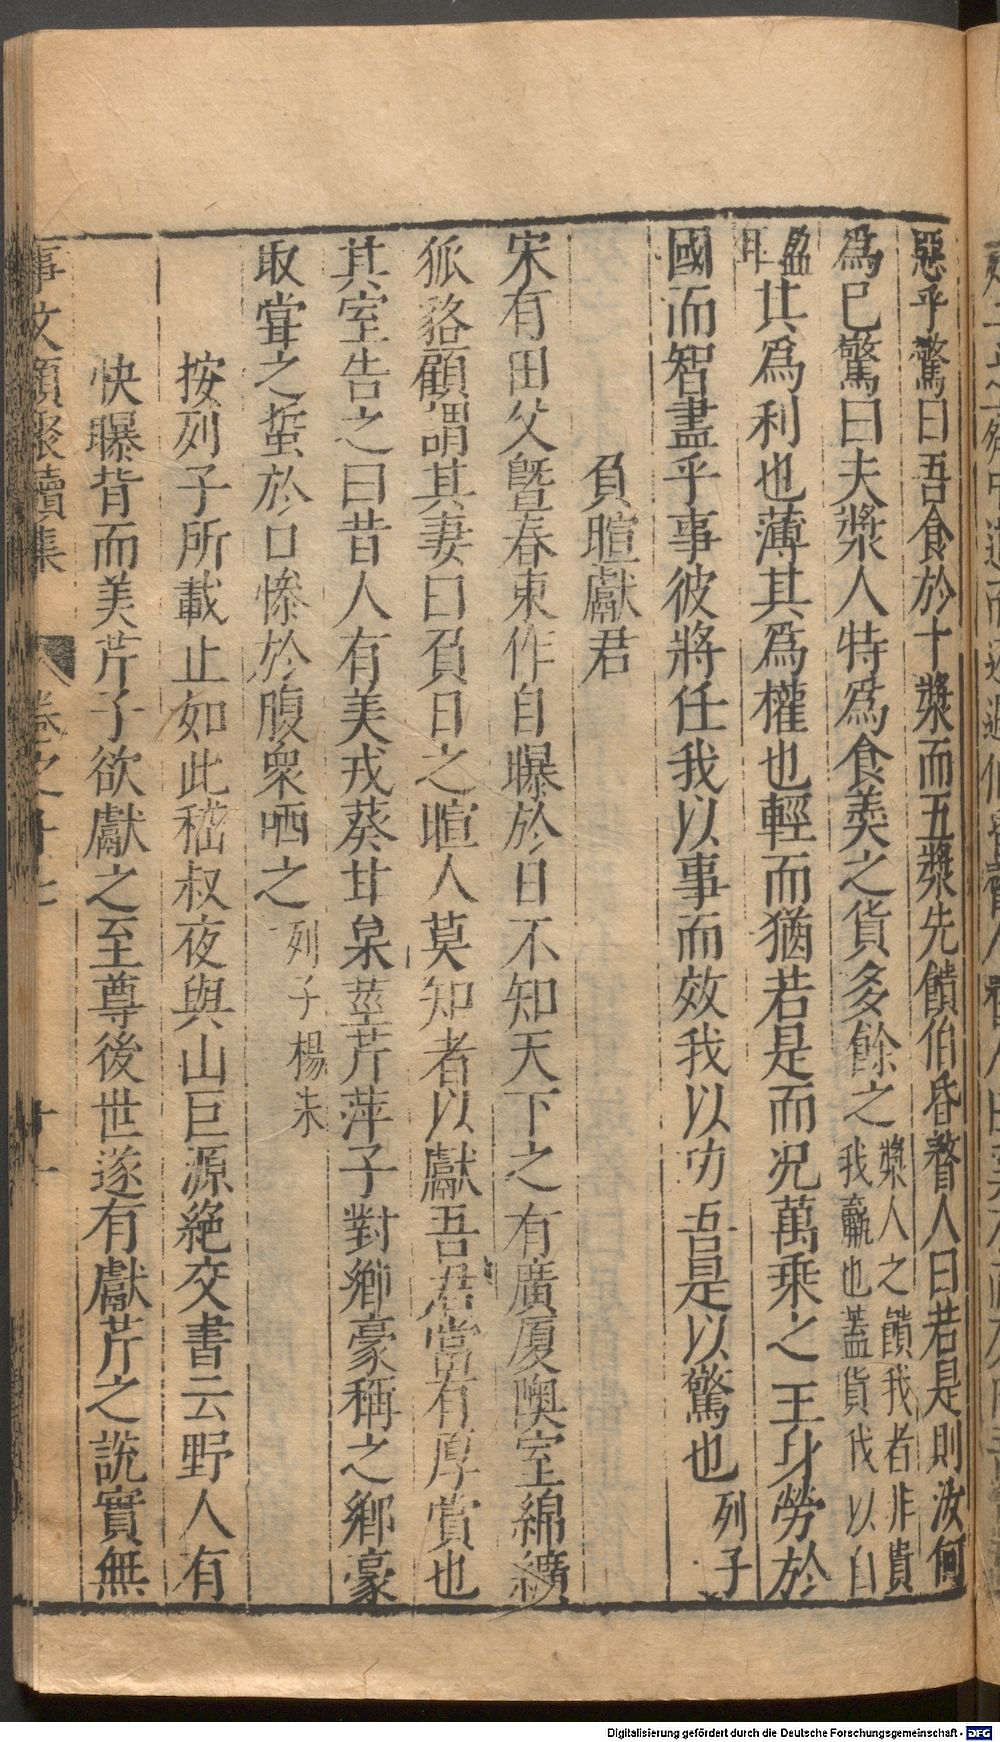 惡乎驚曰吾食於十漿而五漿先饋伯昏瞀人曰若是則汝何
爲巳驚曰夫漿人特爲食羹之貨多餘之漿人之饋我者非貴我贏也蓋貨伐以自
盈耳其爲利也薄其爲權也輕而猶若是而況萬乗之王身勞於
國而智盡乎事彼將任我以事而效我以功吾是以驚也列子
負暄獻君
宋有田父曁春東作自曝於日不知天下之有廣厦隩室綿纊
狐貉顧謂其妻曰負日之暄人莫知者以獻吾君當有厚賞也
其室告之曰昔人有美戎葵甘枲莖芹萍子對鄉豪稱之鄉豪
取嘗之蜇於口慘於腹衆哂之列子楊朱
按列子所載止如此嵇叔夜與山巨源絶交書云野人有
快曝背而美芹子欲獻之至尊後世遂有獻芹之說實無
事文類聚續集 卷之十七 十一
Digitalisierung gefördert durch die Deutsche Forschungsgemeinschaft - DFG